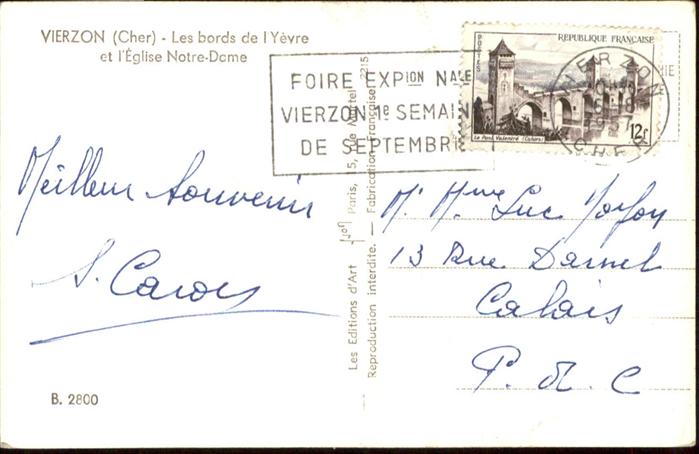 VIERZON (Cher) - Les bords de l'Yèvre
et l'Église Notre-Dame
FOIRE EXPION NALE
VIERZON 1e SEMAIN
DE SEPTEMBRE
POSTES
REPUBLIQUE FRANÇAISE
Le Pont Valentré (Cahors)
12f
VIERZON
CHER
Meilleur Souvenir
S.
B. 2800
Les Editions d'Art Yvon Paris, 15, rue Martel
Reproduction interdite. — Fabrication Française. 2215
Mr Mme Luc
13 Rue Darnel
Calais
P. d. C